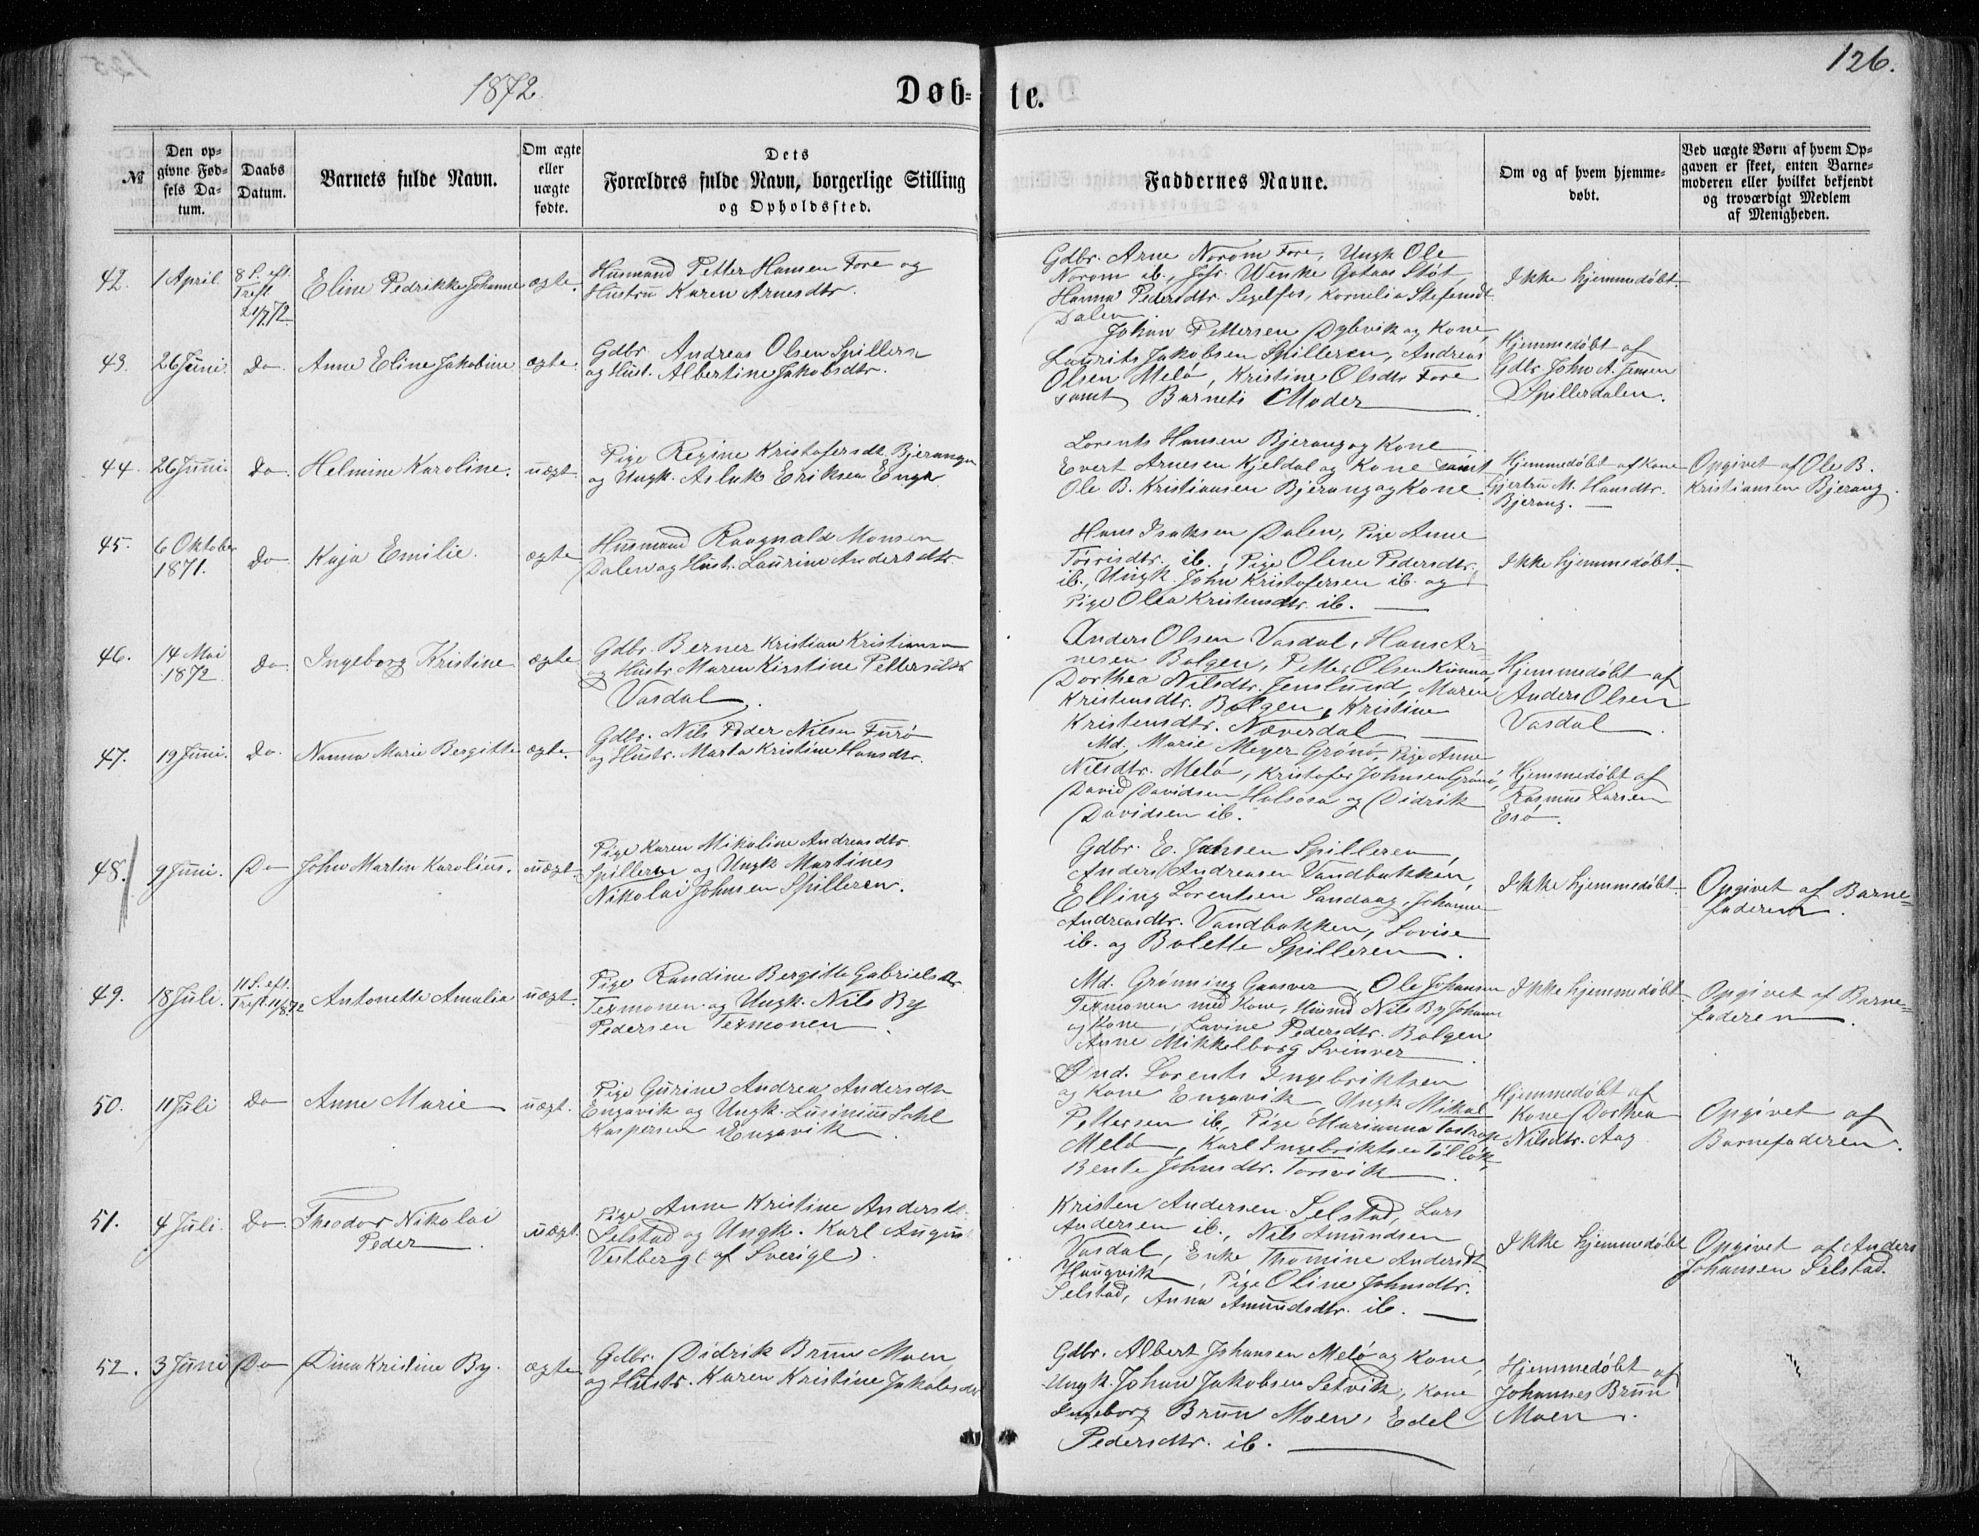 126.
1872.
Døb-te.
№
Den op-
givne Fød-
sels Da-
tum.
Daabs
Datum.
Barnets fulde Navn.
Om ægte
eller
uægte
fødte.
Dets
Forældres fulde Navn, borgerlige Stilling
og Opholdssted.
Faddernes Navne.
Om og af hvem hjemme-
døbt.
Ved uægte Børn af hvem Op-
gaven er skeet, enten Barne-
moderen eller hvilket bekjendt
og troværdigt Medlem
af Menigheden.
42.
1 April
8 S. eft.
Treft.
21/7 72.
Eline Pedrikke Johanne
ægte.
Husmand Petter Hansen Fore og
Hustru Karen Arnesdtr.
Gdbr. Arne Norom Fore, Ungk Ole
Norom ib., Jfr. Wenke Gotaas Støt,
Hanna Pedersdtr. Segelfos, Kornelia Stefensdt.
Dalen.
Ikke hjemmedøbt.
43.
26 Juni.
Do
Anne Eline Jakobine
ægte.
Gdbr. Andreas Olsen Spilleren
og Hust. Albertine Jakobsdtr.
Johan Pettersen Dybvik og Kone,
Laurits Jakobsen Spilleren, Andreas
Olsen Melø, Kristine Olsdtr Fore
samt Barnets Moder
Hjemmedøbt af
Gdbr John A. Jensen
Spillerdalen.
44.
26 Juni.
Do
Helmine Karoline.
uægt.
Pige Regine Kristofersdt. Bjerangen
og Ungk. Aslak Eriksen Enga
Lorents Hansen Bjerang og Kone
Evert Arnesen Kjeldal og Kone samt
Ole B. Kristiansen Bjerang og Kone
Hjemmedøbt af Kone
Gjertru M. Hansdtr.
Bjerang.
Opgivet af Ole B.
Kristiansen Bjerang.
45.
6 Oktober
1871.
Do
Kaja Emilie.
ægte
Husmand Raagnald Monsen
Dalen og Hustr. Laurine Andersdtr.
Hans Isaksen Dalen, Pige Anne
Torrisdtr. ib., Pige Olene Pedersdtr.
ib., Ungk. John Kristofersen ib. og
Pige Olea Kristensdtr. ib.
Ikke hjemmedøbt.
46.
14 Mai
1872.
Do
Ingeborg Kristine
ægte
Gdbr. Berner Kristian Kristiansen
og Hustr. Maren Kirstine Pettersdtr
Vasdal.
Anders Olsen Vasdal, Hans Ar-
nesen Bolgen, Petter Olsen Kunna
Dorthea Nilsdtr. Jenslund, Maren
Kristensdtr. Bolgen, Kristine
Kristensdtr. Næverdal
Hjemmedøbt af
Anders Olsen
Vasdal.
47.
19 Juni.
Do
Nanna Marie Bergitte
ægte.
Gdbr. Nils Peder Nilsen Furø
og Hustr. Marta Kristine Hansdtr.
Md. Marie Meyer Grønø, Pige Anne
Nilsdtr. Melø, Kristofer Johnsen Grønø,
David Davidsen Holsosa og Didrik
Davidsen ib.
Hjemmedøbt af
Rasmus Larsen
Esø.
48.
9 Juni.
Do
John Martin Karolius.
uægt.
Pige Karen Mikaline Andreasdtr
Spilleren og Ungk Martines
Nikolai Johnsen Spilleren.
Gdbr. E. Jansen Spilleren,
Anders Andreasen Vandbakken,
Elling Lorentsen Sandaag, Johanne
Andreasdtr. Vandbakken, Lovise
ib. og Bolette Spilleren.
Ikke hjemmedøbt.
Opgivet af Barne-
faderen.
49.
18 Juli.
11 S. eft.
Treft. 11/8 72
Antonette Amalia
uægt.
Pige Randine Bergitte Gabrielsdtr
Texmonen og Ungk. Nils By
Pedersen Texmonen.
Md. Grønning Gaasvær, Ole Johansen
Texmonen med Kone, Husmd Nils By Johansen
og Kone, Lavine Pedersdtr. Bolgen
Anne Mikkelborg Svinver
Ikke hjemmedøbt
Opgivet af Barne-
faderen.
50.
11 Juli
Do
Anne Marie
uægt.
Pige Gurine Andrea Andersdtr
Engavik og Ungk. Lusinius Dahl
Kaspersen Engavik.
Ind. Lorents Ingebriktsen
og Kone Engavik, Ungk Mikal
Pettersen ib., Pige Marianna Tostrup
Melø, Karl Ingebriktsen Tolløk,
Bente Johnsdtr. Torsvik.
Hjemmedøbt af
Kone Dorthea
Nilsdtr. Aag
Opgivet af
Barnefaderen.
51.
4 Juli.
Do
Theodor Nikolai
Peder.
uægt.
Pige Anne Kristine Andersdt.
Selstad og Ungk. Karl August
Vestberg (af Sverige).
Kristen Andersen Selstad, Lars
Andersen ib., Nils Amundsen
Vasdal, Enke Thomine Andersdt.
Haugvik, Pige Oline Johnsdtr.
Selstad, Anna Amundsdtr. ib.
Ikke hjemmedøbt
Opgivet af Anders
Johansen Selstad.
52.
3 Juni
Do
Dina Kristine By.
ægte
Gdbr. Didrik Bruun Moen
og Hustr. Karen Kristine Jakobsdtr
Gdbr. Albert Johansen Melø og Kone,
Ungk. Johan Jakobsen Setvik, Kone
Ingeborg Bruun Moen, Edel
Pedersdtr. ib.
Hjemmedøbt af
Johannes Bruun
Moen.